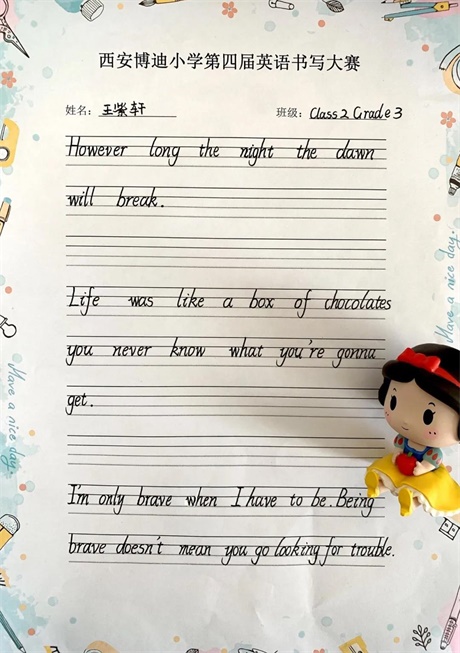 西安博迪小学第四届英语书写大赛
姓名: 王紫轩 班级: Class 2 Grade 3
However long the night the dawn
will break.
Life was like a box of chocolates
you never know what you're gonna
get.
I'm only brave when I have to be. Being
brave doesn't mean you go looking for trouble.
Have a nice day.
Have a nice day.